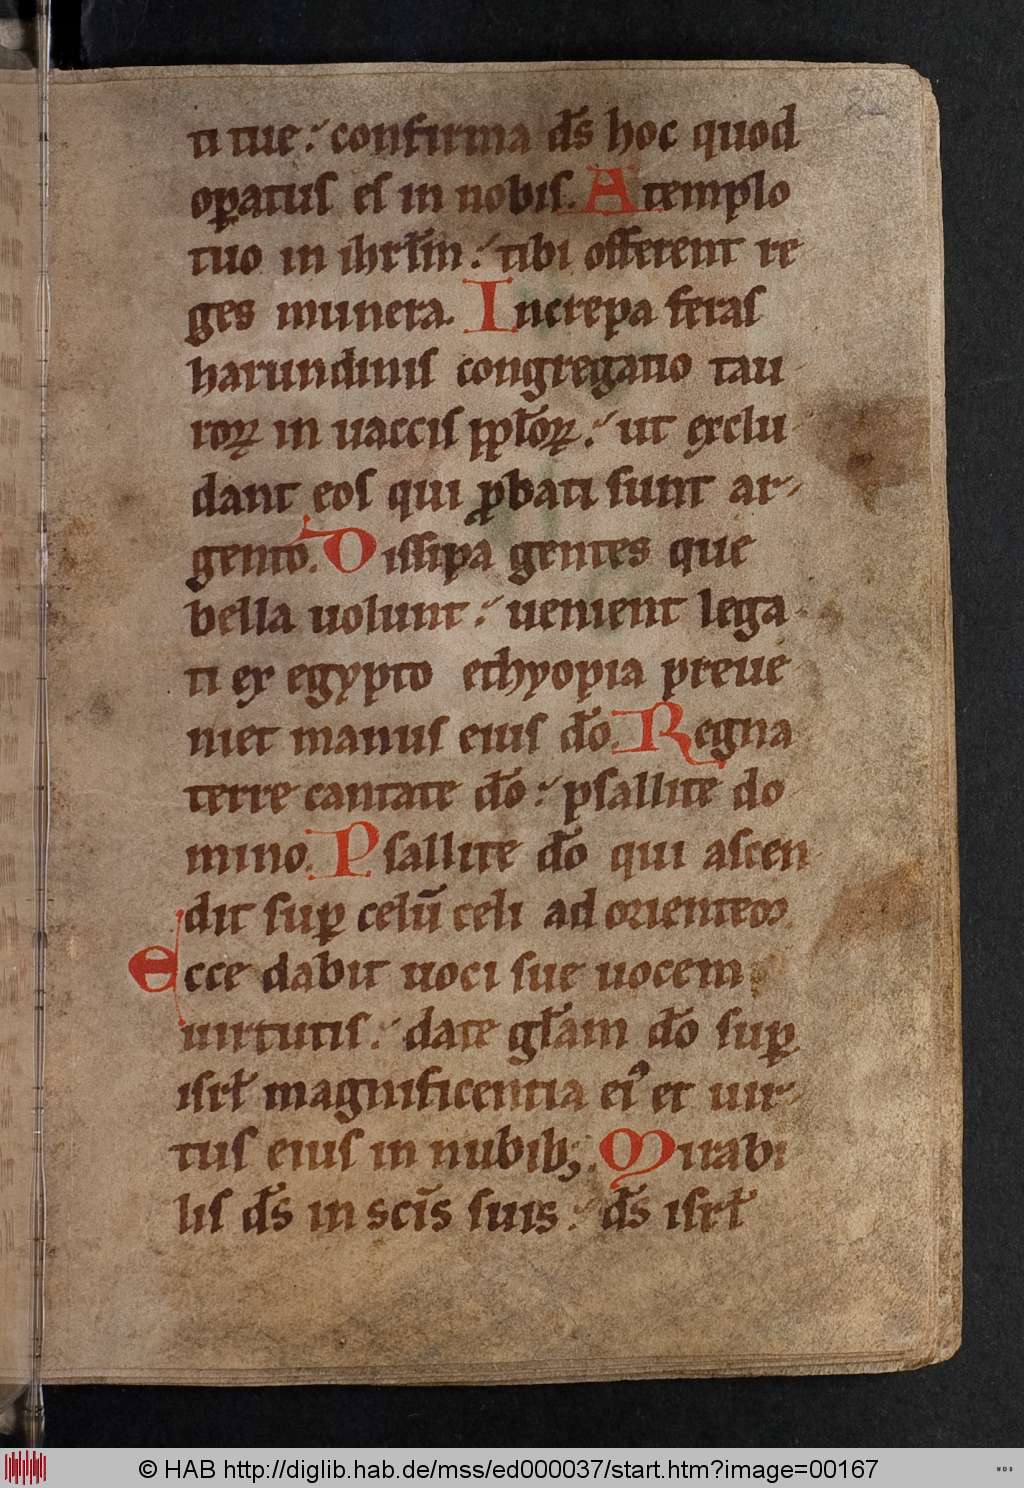 ti tue : confirma d̄s hoc quod
oꝑatus es in nobis. A templo
tuo in ihrl̄m : tibi offerent re
ges munera. Increpa feras
harundinis congregatio tau
roꝝ in uaccis ppl̄oꝝ : ut exclu
dant eos qui ꝓbati sunt ar-
gento. Dissipa gentes que
bella uolunt : uenient lega
ti ex egypto ethyopia preue
niet manus eius dō. Regna
terre cantate dō : psallite do
mino. Psallite dō qui ascen
dit suꝑ celū celi ad orientem
Ecce dabit uoci sue uocem
uirtutis : date gl̄am dō suꝑ
isrl̄ magnificentia eiꝰ et uir-
tus eius in nubibꝫ. Mirabi
lis d̄s in scīs suis : d̄s isrl̄
© HAB http://diglib.hab.de/mss/ed000037/start.htm?image=00167